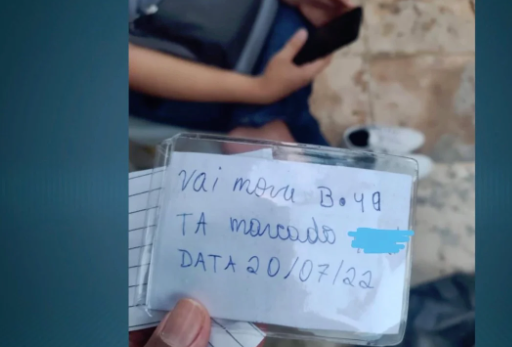 Vai morre B.49
TA marcado
DATA 20/07/22